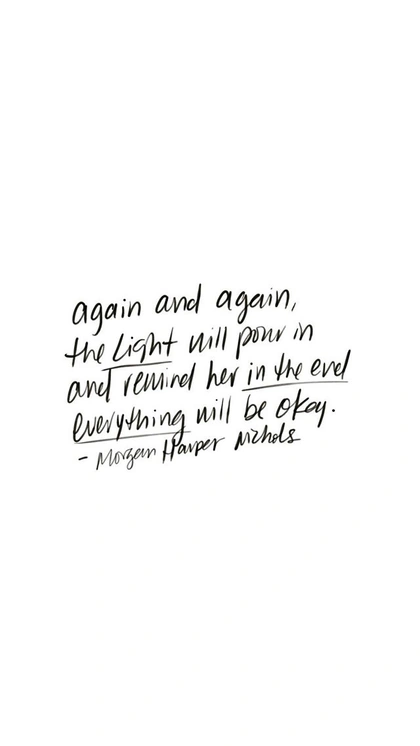 again and again,
the Light will pour in
and remind her in the end
everything will be okay.
- Morgan Harper Nichols